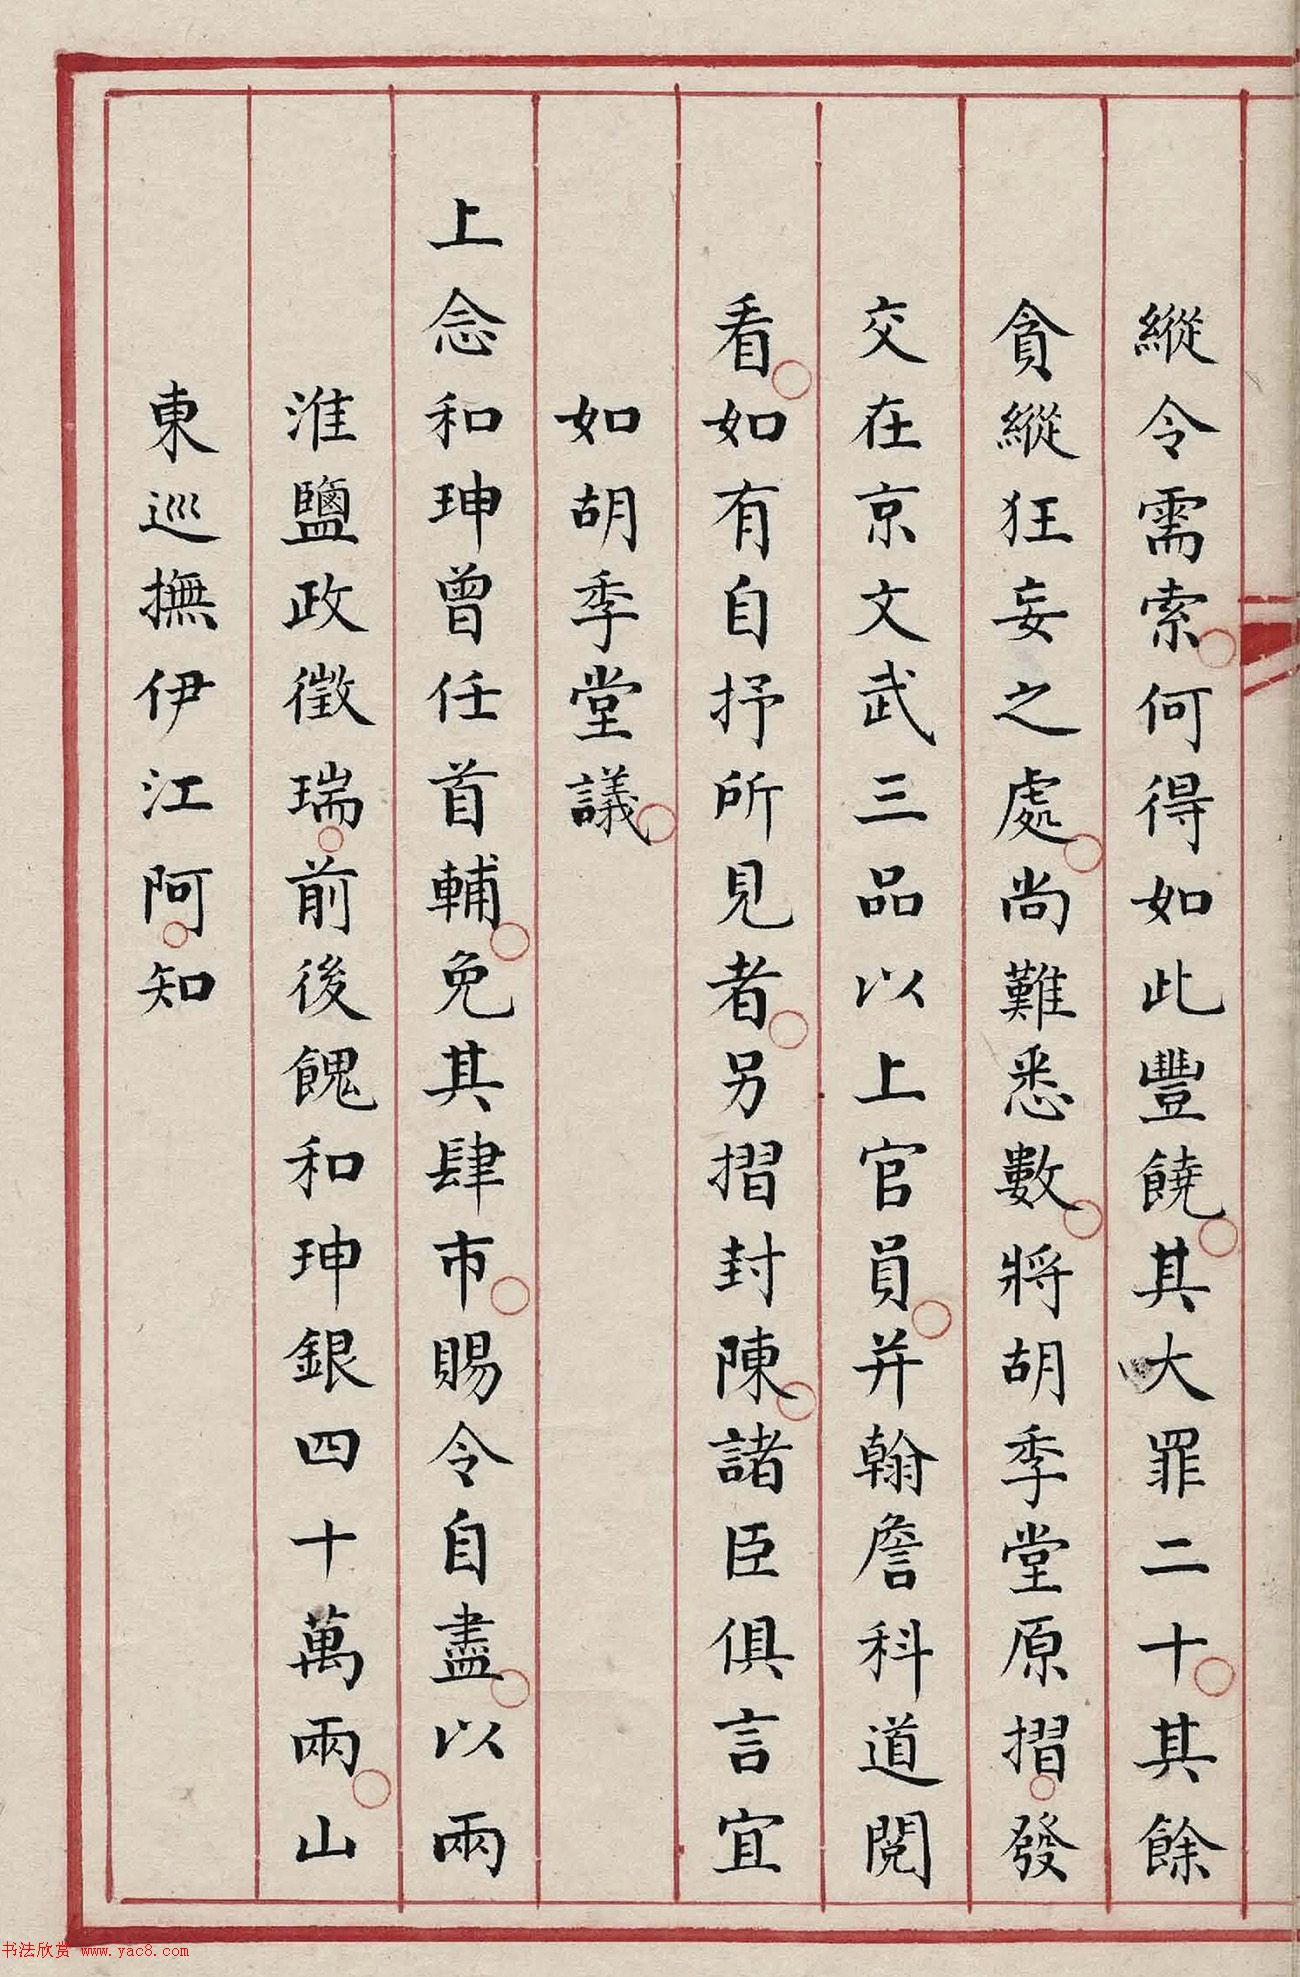 縱令需索何得如此豐饒其大罪二十其餘
貪縱狂妄之處尚難悉數將胡季堂原摺發
交在京文武三品以上官員并翰詹科道閱
看如有自抒所見者另摺封陳諸臣俱言宜
如胡季堂議
上念和珅曾任首輔免其肆市賜令自盡以兩
淮鹽政徵瑞前後餽和珅銀四十萬兩山
東巡撫伊江阿知
书法欣赏 www.yac8.com